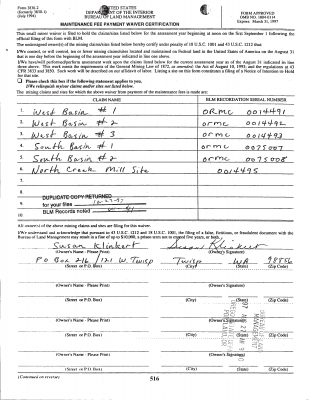 Form 3830-2
(formerly 3830-1)
(July 1994)
UNITED STATES
DEPARTMENT OF THE INTERIOR
BUREAU OF LAND MANAGEMENT
MAINTENANCE FEE PAYMENT WAIVER CERTIFICATION
FORM APPROVED
OMB NO. 1004-0114
Expires: March 31, 1997
This small miner waiver is filed to hold the claims/sites listed below for the assessment year beginning at noon on the first September 1 following the
official filing of this form with BLM.
The undersigned owner(s) of the mining claims/sites listed below hereby certify under penalty of 18 U.S.C. 1001 and 43 U.S.C. 1212 that:
I/We control, or will control, ten or fewer mining claims/sites located and maintained on Federal land in the United States of America on the August 31
that is one day before the beginning of the assessment year indicated in line one above.
I/We have/will performed/perform assessment work upon the claims listed below for the current assessment year as of the August 31 indicated in line
one above. This work meets the requirements of the General Mining Law of 1872, as amended, the Act of August 10, 1993, and the regulations at 43
CFR 3833 and 3850. Such work will be described on our affidavit of labor. Listing a site on this form constitutes a filing of a Notice of Intention to Hold
for this site.
Please check this box if the following statement applies to you.
I/We relinquish my/our claims and/or sites not listed below.
The mining claims and sites for which the above waiver from payment of the maintenance fees is made are:
CLAIM NAME
BLM RECORDATION SERIAL NUMBER
1. West Basin # 1 ORMC 0014491
2. West Basin # 2 ORMC 0014492
3. West Basin # 3 ORMC 0014493
4. South Basin # 1 ORMC 0075007
5. South Basin # 2 ORMC 0075008
6. North Creek Mill Site 0014495
7.
8.
9.
10.
DUPLICATE COPY RETURNED
for your files
BLM Records noted
All owner(s) of the above mining claims and sites are filing for this waiver.
I/We understand and acknowledge that pursuant to 43 U.S.C. 1212 and 18 U.S.C. 1001, the filing of a false, fictitious, or fraudulent document with the
Bureau of Land Management may result in a fine of up to $10,000, a prison term not to exceed five years, or both.
Susan Klinkert Susan Klinkert
(Owner's Name - Please Print) (Owner's Signature)
PO Box 216 / 121 W. Twisp Twisp WA 98856
(Street or P.O. Box) (City) (State) (Zip Code)
(Owner's Name - Please Print) (Owner's Signature)
(Street or P.O. Box) (City) (State) (Zip Code)
(Owner's Name - Please Print) (Owner's Signature)
(Street or P.O. Box) (City) (State) (Zip Code)
(Owner's Name - Please Print) (Owner's Signature)
(Street or P.O. Box) (City) (State) (Zip Code)
(Continued on reverse)
516